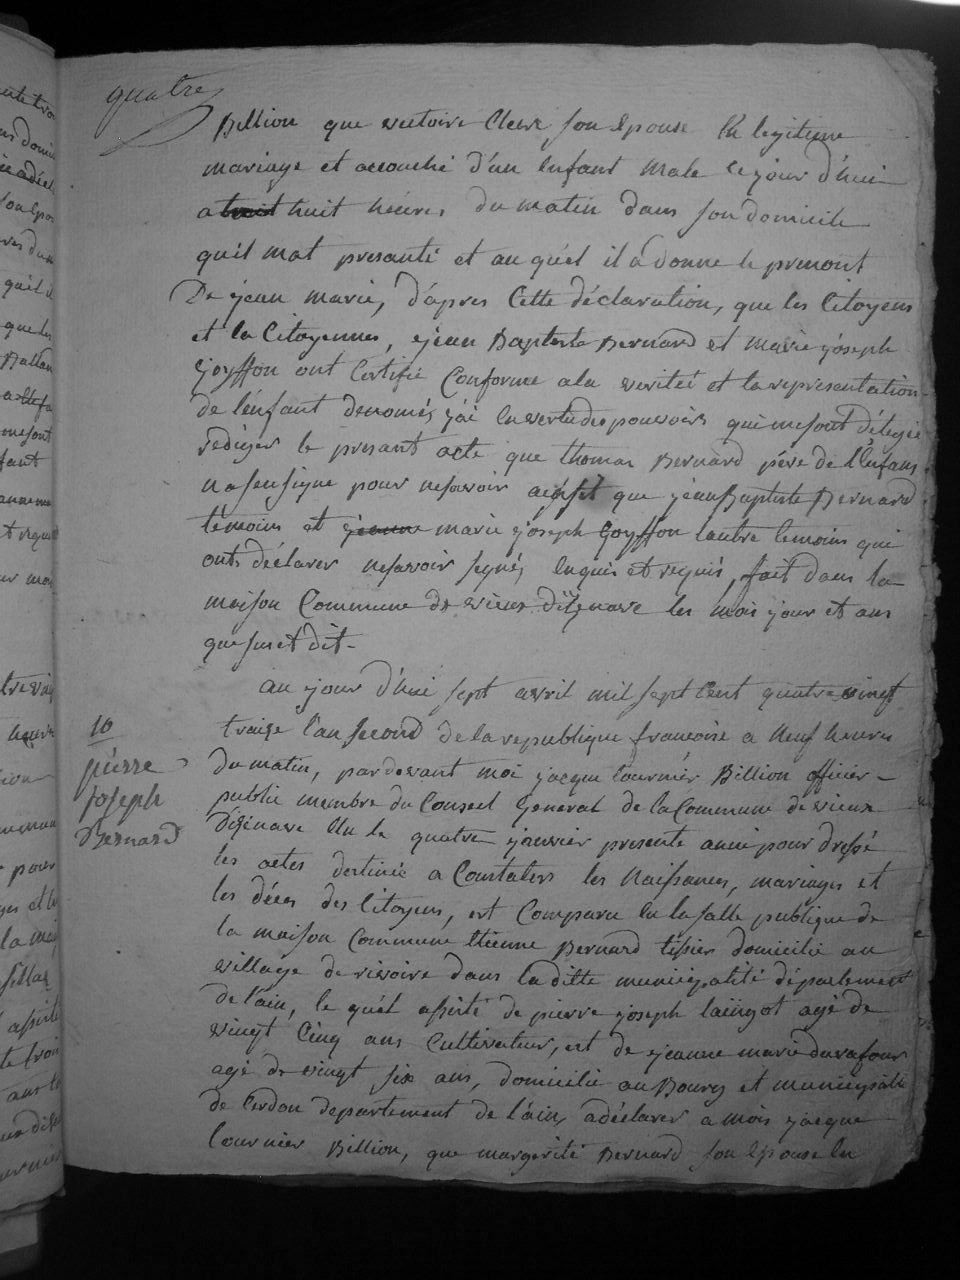 quatre
Billion que victoire Clerc son Epouse En legitime
mariage et accouché d'un Enfant Male ce jour d'hui
a huit heures du matin dans son domicile
qu'il mat presanté et au quel il a donné le prenont
De jean marie, d'apres Cette déclaration, que les Citoyens
et la Citoyennes, jean Baptiste Bernard et marie joseph
goyffon ont Certifié Conforme a la verité et la representation
de l'enfant denomés, j'ai En vertu des pouvoirs qui me sont délégué
rediger le presant acte que thomas Bernard père de l'Enfans
na sen signe pour ne savoir que jean Baptiste Bernard
témoins et jeanne marie joseph goyffon l'autre temoins qui
onts déclarer ne savoir signés Enquis et requis, fait dans la
maison Commune de vieux d'izenave les mois jour et ans
que sus et dit -
au jour d'hui sept avril mil sept Cent quatre vingt
traize l'an second de la republique francoise a Neuf heures
du matin, par devant moi jacque tournier Billion officier
public membre du Conseil General de la Commune de vieux
dizenave Elu le quatre janvier presente année pour dressé
les actes destinée a Constaters les Naissances, mariages et
les décès des Citoyens, est Comparu En la salle publique de
la maison Commune Etienne Bernard tissier domicilié au
village de rivoire dans la ditte municipalité département
de l'ain, le quel assisté de pierre joseph laingot agé de
vingt Cinq ans Cultivateur, et de jeanne marie duraffour
agé de vingt six ans, domicilié au Bourg et municipalité
de Cerdon departement de l'ain, a déclarer a mois jacque
tournier Billion, que margerite Bernard son Epouse En
10
pierre
joseph
Bernard